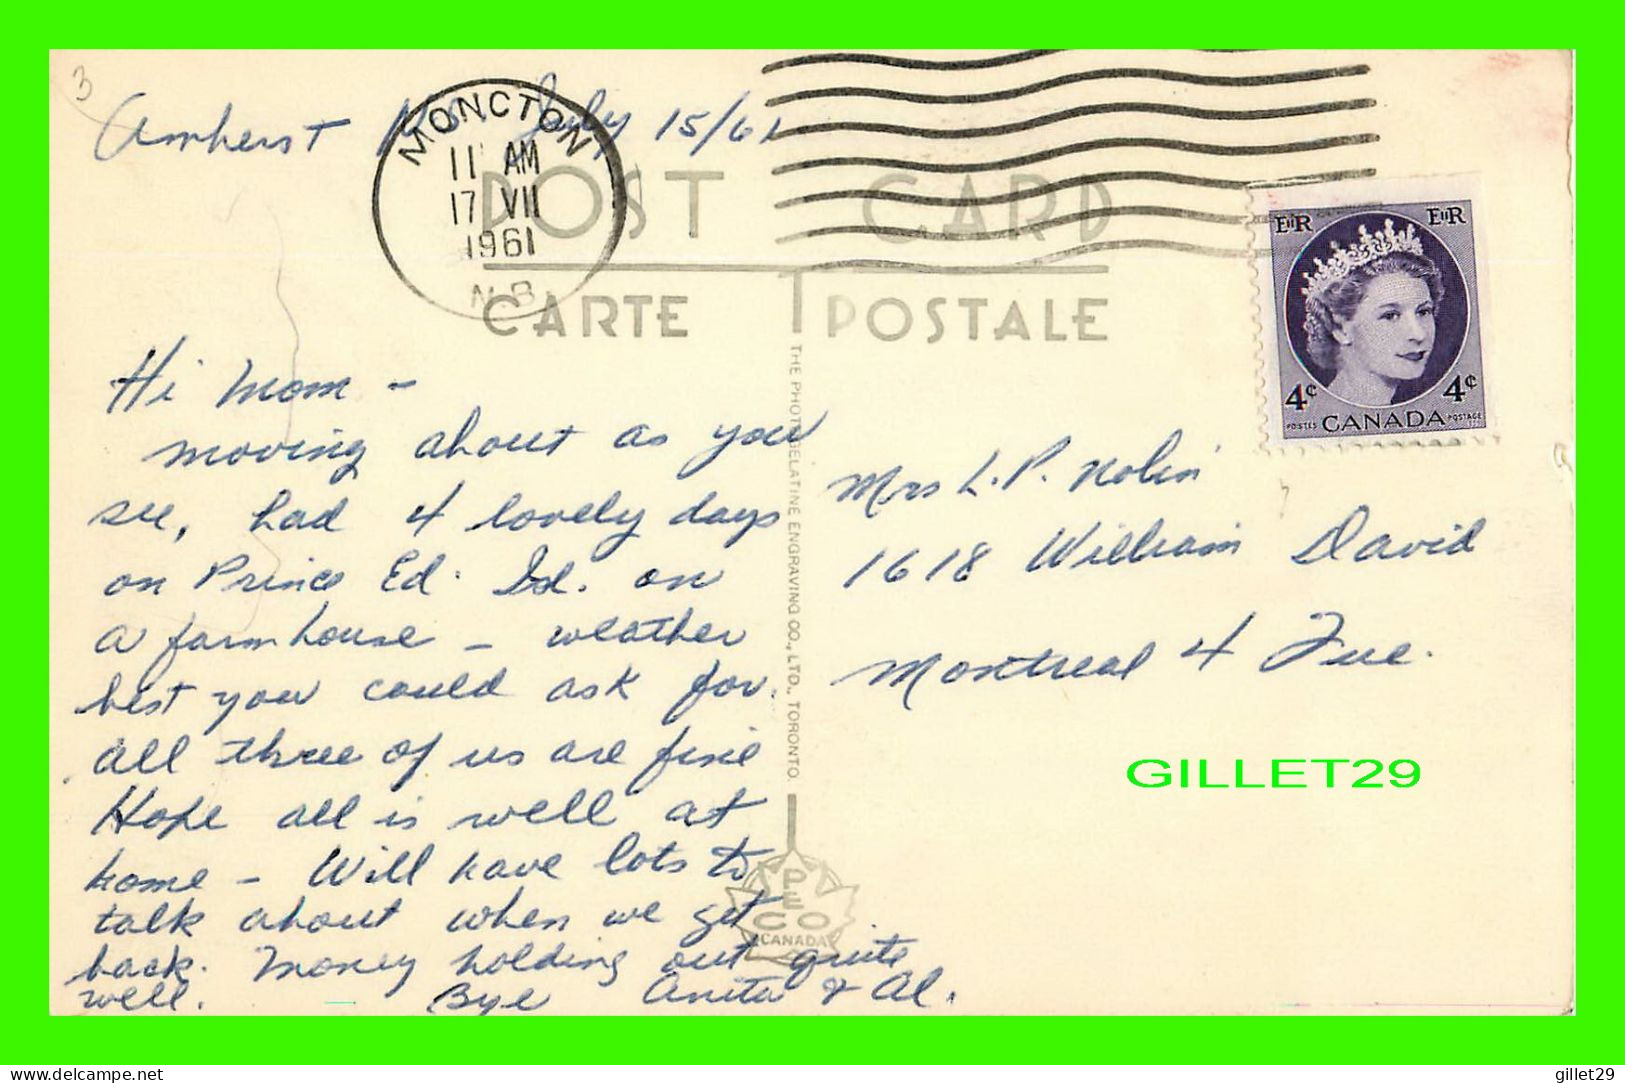 3
Amherst N.S. July 15/61
MONCTON
11 AM
17 VII
1961
N.B.
POST CARD
CARTE POSTALE
E II R E II R
4¢ 4¢
POSTES CANADA POSTAGE
Hi Mom -
moving about as you
see, had 4 lovely days
on Prince Ed. Isl. on
a farmhouse - weather
best you could ask for.
all three of us are fine
Hope all is well at
home - Will have lots to
talk about when we get
back. Money holding out quite
well. Bye Anita & Al.
THE PHOTOGELATINE ENGRAVING CO., LTD., TORONTO.
PECO
CANADA
Mrs L.P. Nolin
1618 William David
Montreal 4 Que.
GILLET29
https://www.delcampe.net
gillet29